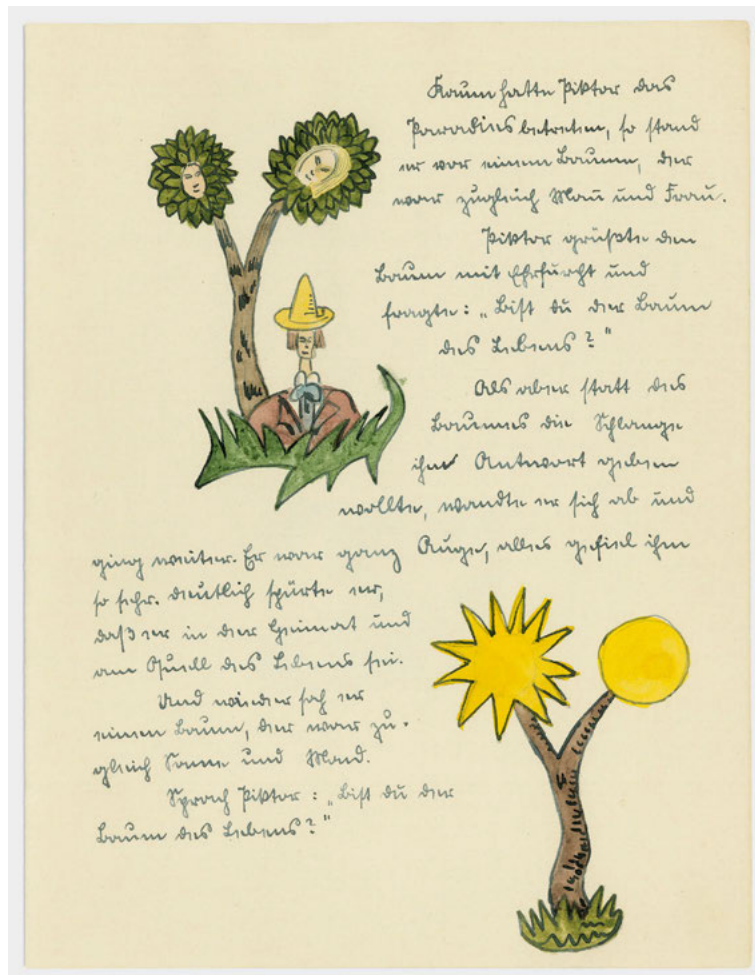 Kaum hatte Piktor das
Paradies betreten, so stand
er vor einem Baume, der
war zugleich Mann und Frau.
Piktor grüßte den
Baum mit Ehrfurcht und
fragte: „Bist du der Baum
des Lebens?"
Als aber statt des
Baumes die Schlange
ihm Antwort geben
wollte, wandte er sich ab und
ging weiter. Er war ganz Auge, alles gefiel ihm
so sehr. Deutlich spürte er,
daß er in der Heimat und
am Quell des Lebens sei.
Und wieder sah er
einen Baum, der war zu-
gleich Sonne und Mond.
Sprach Piktor: „Bist du der
Baum des Lebens?"